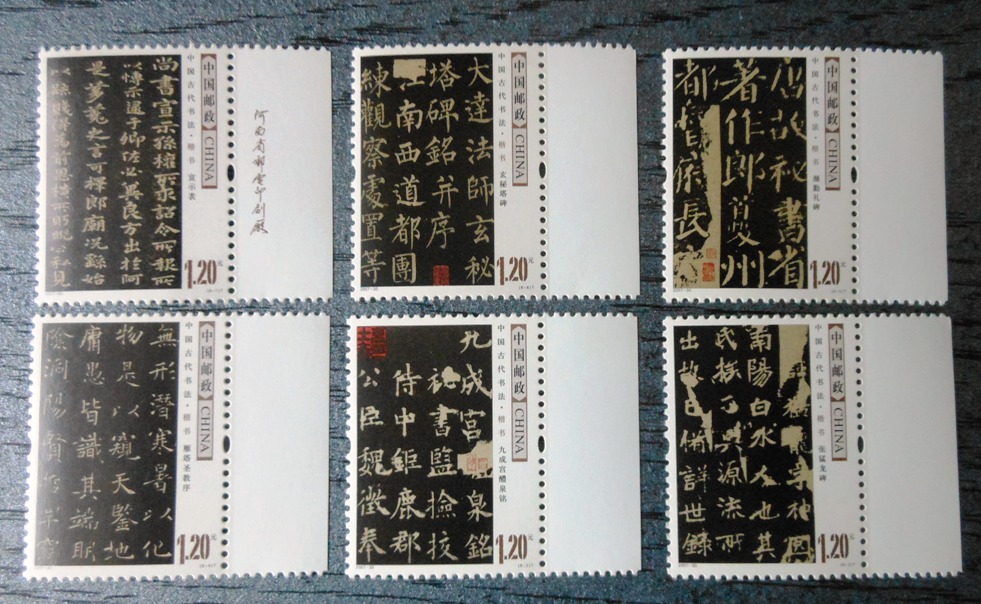 尚書宣示孫權所求詔令所報所
以博示逮于卿佐必冀良方出於阿
是芻蕘之言可擇郎廟況繇始
以疏賤得為前恩橫所眄睨公私見
中国邮政 CHINA
中国古代书法·楷书 宣示表
1.20元
河南省邮电印刷厂
大達法師玄秘
塔碑銘并序
江南西道都團
練觀察處置等
中国邮政 CHINA
中国古代书法·楷书 玄秘塔碑
1.20元
唐故秘書省
著作郎夔州
都督府長史
中国邮政 CHINA
中国古代书法·楷书 颜勤礼碑
1.20元
無形潛寒暑以化
物是以窺天鑒地
庸愚皆識其端明
陰洞陽賢哲罕窮
中国邮政 CHINA
中国古代书法·楷书 雁塔圣教序
1.20元
九成宮醴泉銘
秘書監撿挍
侍中鉅鹿郡
公臣魏徵奉
中国邮政 CHINA
中国古代书法·楷书 九成宫醴泉铭
1.20元
猛龍字神囧
南陽白水人也其
氏族分興源流所
出故已備詳世錄
中国邮政 CHINA
中国古代书法·楷书 张猛龙碑
1.20元